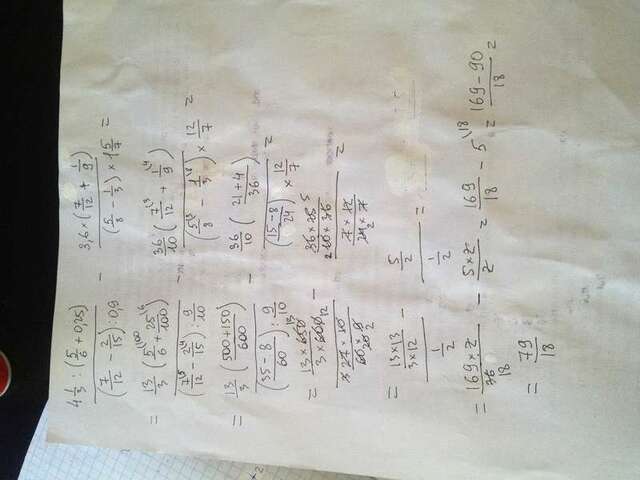 4 1/3 : (5/6 + 0,25) / (7/12 - 2/15) : 0,9 - 3,6 × (7/12 + 1/9) / (5/8 - 1/3) × 1 5/7 =
= 13/3 (5/6 \100 + 25/100 \6) / (7/12 \5 - 2/15 \4) : 9/10 - 36/10 (7/12 \3 + 1/9 \4) / (5/8 \3 - 1/3 \8) × 12/7 =
= 13/3 (500+150 / 600) / (35-8 / 60) : 9/10 - 36/10 (21+4 / 36) / (15-8 / 24) × 12/7 =
= 13 × 650 13 / 3 × 600 12 / 27 × 10 / 60 × 9 2 - 36 × 25 5 / 2 10 × 36 / 7 × 12 / 24 × 7 2 =
= 13×13 / 3×12 / 1/2 - 5/2 / 1/2 =
= 169 × 2 / 36 18 - 5 × 2 / 2 = 169/18 - 5 \18 = 169 - 90 / 18 =
= 79/18